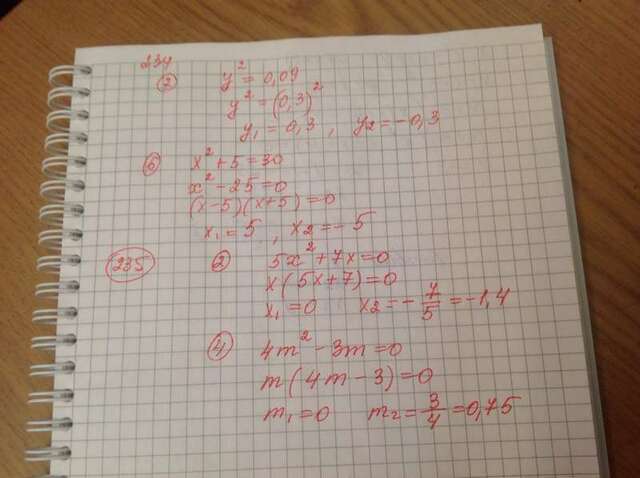 234
② y² = 0,09
y² = (0,3)²
y₁ = 0,3 , y₂ = -0,3
⑥ x² + 5 = 30
x² - 25 = 0
(x-5)(x+5) = 0
x₁ = 5 , x₂ = -5
235 ② 5x² + 7x = 0
x(5x+7) = 0
x₁ = 0 x₂ = -7/5 = -1,4
④ 4m² - 3m = 0
m(4m-3) = 0
m₁ = 0 m₂ = 3/4 = 0,75